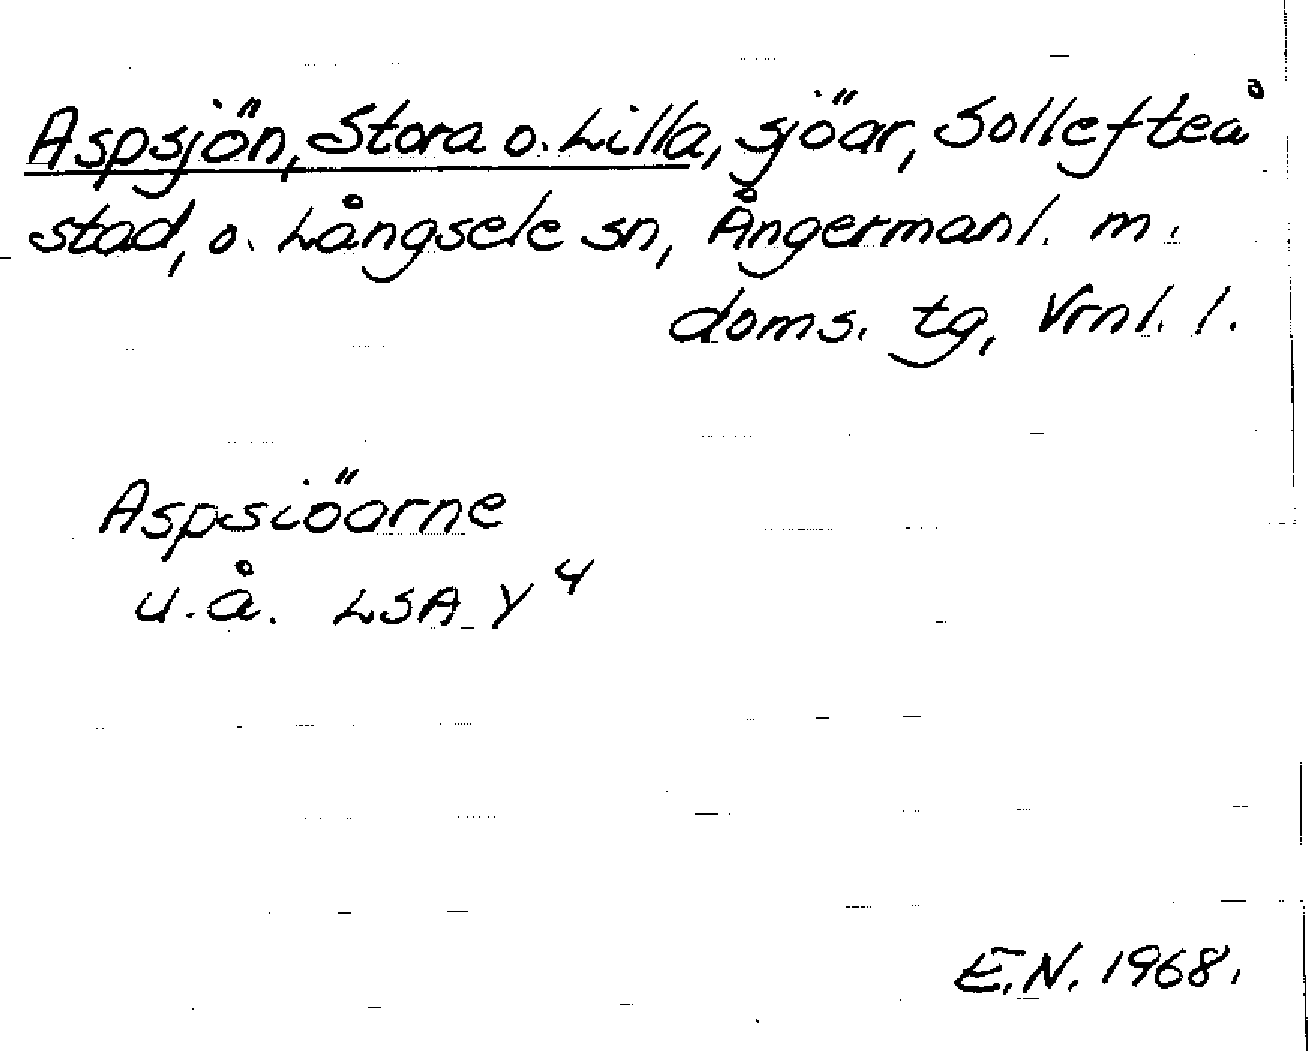 Aspsjön, Stora o. Lilla, sjöar, Sollefteå
stad, o. Långsele sn, Ångermanl. m.
doms. tg, Vrnl. l.
Aspsiöarne
u.å. LSA Y4
E.N. 1968.